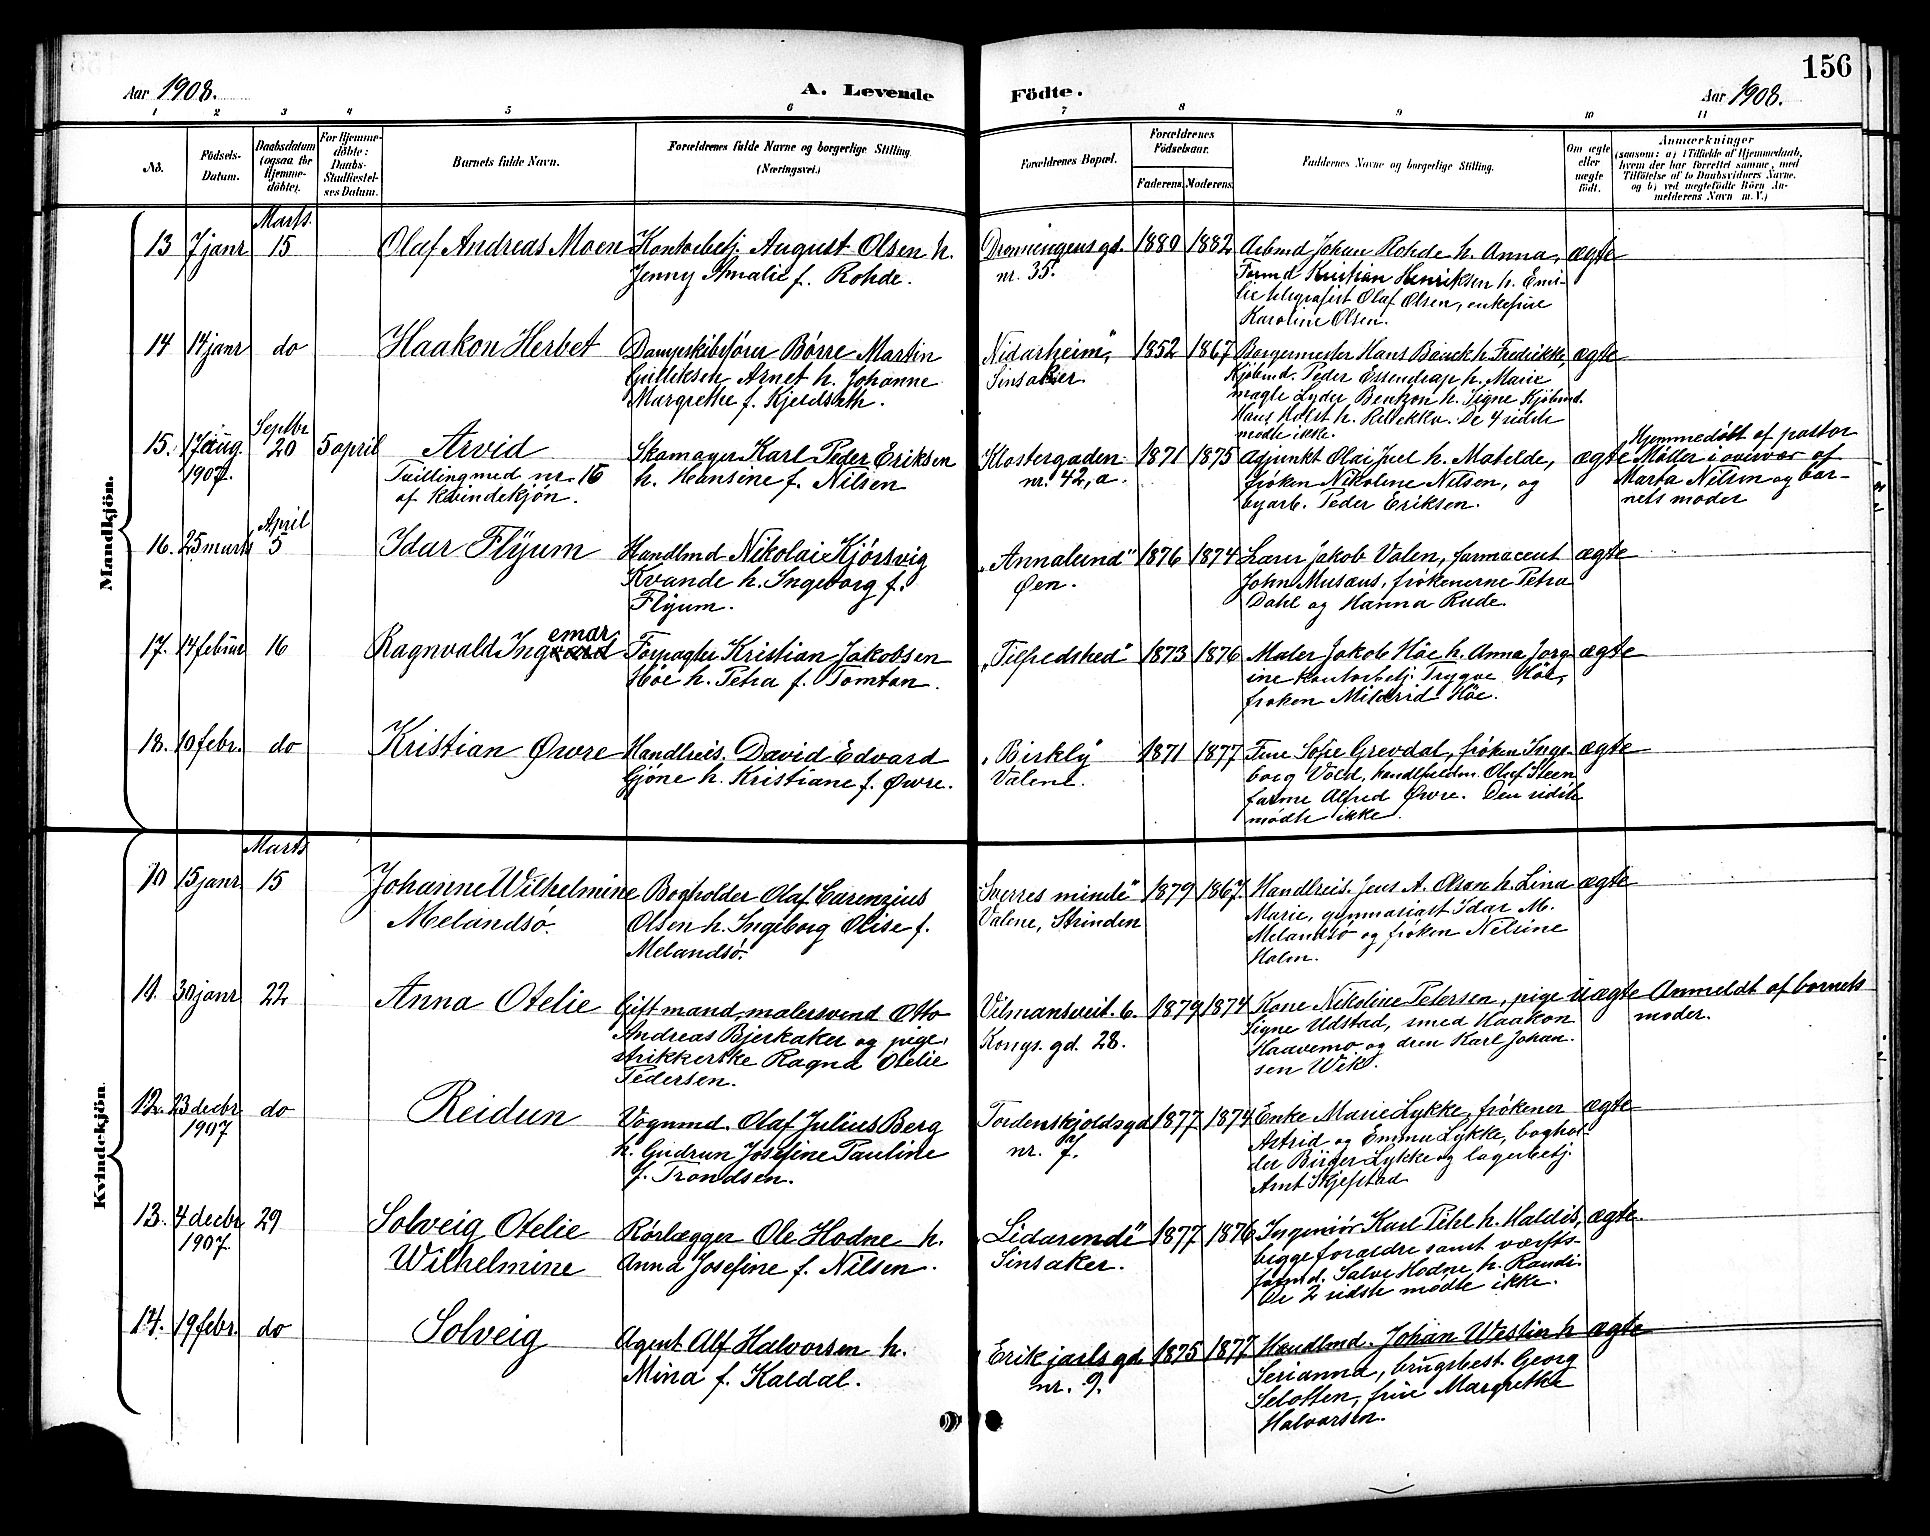 156
Aar 1908.
A. Levende Födte.
Aar 1908.
1 2 3 4 5 6 7 8 9 10 11
No.
Födsels-
Datum.
Daabsdatum
(ogsaa for
Hjemme-
döbte).
For Hjemme-
döbte:
Daabs-
Stadfæstel-
ses Datum.
Barnets fulde Navn.
Forældrenes fulde Navne og borgerlige Stilling.
(Næringsvei.)
Forældrenes Bopæl.
Forældrenes
Födselsaar.
Faderens. Moderens.
Faddernes Navne og borgerlige Stilling.
Om ægte
eller
uægte
födt.
Anmærkninger
(saasom: a) i Tilfælde af Hjemmedaab,
hvem der har forrettet samme, med
Tilföielse af to Daabsvidners Navne.
og b) ved uægtefödte Börn An-
melderens Navn m. V.)
Mandkjön.
Marts
13 7 janr 15 Olaf Andreas Moen
Kontorbetj. August Olsen h.
Jenny Amalie f. Rohde.
Dronningens gd.
nr. 35.
1880 1882
Arbmd Johan Rohde h. Anna,
Formd Kristian Henriksen h. Emi-
lie telegrafist Olaf Olsen, enkefrue
Karoline Olsen.
ægte
14 14 janr do Haakon Herbet
Dampskibsfører Børre Martin
Gulliksen Arnet h. Johanne
Margrethe f. Kjeldseth.
Nidarheim"
Sinsaker.
1852 1867
Borgermester Hans Bauck h. Fredrikke,
Kjøbmd. Peder Essendrop h. Marie
mægle Lyder Bentzon h. Signe Kjøbmd.
Hans Holst h. Rebekka. De 4 sidste
mødte ikke.
ægte
Septbr
15. 17 aug. 1907. 20 5 april Arvid
Tvillingmed nr. 15
af kvindekjön.
Skomager Karl Peder Eriksen
h. Hansine f. Nilsen
Klostergaden
nr. 42, a.
1871 1875
Adjunkt Olai Juel h. Matilde,
frøken Nikoline Nilsen, og
byarb. Peder Eriksen.
ægte
Hjemmedøbt af pastor
Møller i overvær af
Marta Nilsen og bar-
nets moder
April
16. 25 marts 5 Idar Flÿum
Handlmd Nikolai Kjørsvig
Kvande h. Ingeborg f.
Flÿum.
"Annalund"
Øen.
1876 1874
Lærer Jakob Valen, farmaceut
John Musæus, frøkenerne Petra
Dahl og Hanna Rude.
ægte
17. 14 februar 16 Ragnvald Ingemar
Forpagter Kristian Jakobsen
Höe h. Petra f. Tomtan.
"Tilfredshed"
1873 1876
Maler Jakob Höe h. Anna Jørg-
ine kontorbetj. Trygve Höe,
frøken Mildrid Höe.
ægte
18. 10 febr. do Kristian Øwre
Handlreis. David Edvard
Gjöne h. Kristiane f. Øwre.
"Birkly"
Valene.
1871 1877
Frue Sofie Grevdal, frøken Inge-
borg Vold, handlfuldm. Oluf Steen
farme Alfred Øwre. Den sidste
mødte ikke.
ægte
Kvindekjön.
Marts
10 15 janr 15 Johanne Wilhelmine
Melandsö.
Bogholder Olaf Carenzius
Olsen h. Ingeborg Olise f.
Melandsö.
Sverres minde"
Valene, Strinden
1879 1867.
Handlreis. Jens A. Olsen h. Lina
Marie, gymnasiast Idar M.
Melandsö og frøken Nelsine
Holm.
ægte
11. 30 janr 22 Anna Otelie
Gift mand, malersvend Otto
Andreas Bjerkaker og pige,
strikkerske Ragna Otelie
Pedersen.
Vilmansveit. 6.
Kongs. gd. 28.
1879 1874
Kone Nikoline Petersen, pige
Signe Udstad, smed Haakon
Haavemo og dren Karl Johan-
sen Wik.
uægte
Anmeldt af barnets
moder.
12. 23 decbr 1907 do Reidun
Vognmd. Olaf Julius Berg
h. Gudrun Josefine Pauline
f. Trondsen.
Tordenskjoldsgd
nr. 7.
1877 1874
Enke Marie Lykke, frøkener
Astrid og Emma Lykke, boghol-
der Birger Lykke og lagerbetj.
Arnt Skjefstad
ægte
13. 4 decbr 1907. 29 Solveig Otelie
Wilhelmine
Rørlægger Ole Hodne h.
Anna Josefine f. Nilsen.
"Lidarende"
Sinsaker.
1877 1876
Ingeniör Karl Pihl h. Haldis,
begge forældre samt værfts-
formd. Salve Hodne h. Randi.
De 2 sidste mødte ikke.
ægte.
14. 19 febr. do Solveig
Agent Alf Halvorsen h.
Mina f. Kaldal.
Erik jarls gd.
nr. 9.
1875 1877
Handlmd. Johan Westin h
Serianna, brugsbest. Georg
Selotten, frue Margrethe
Halvorsen.
ægte